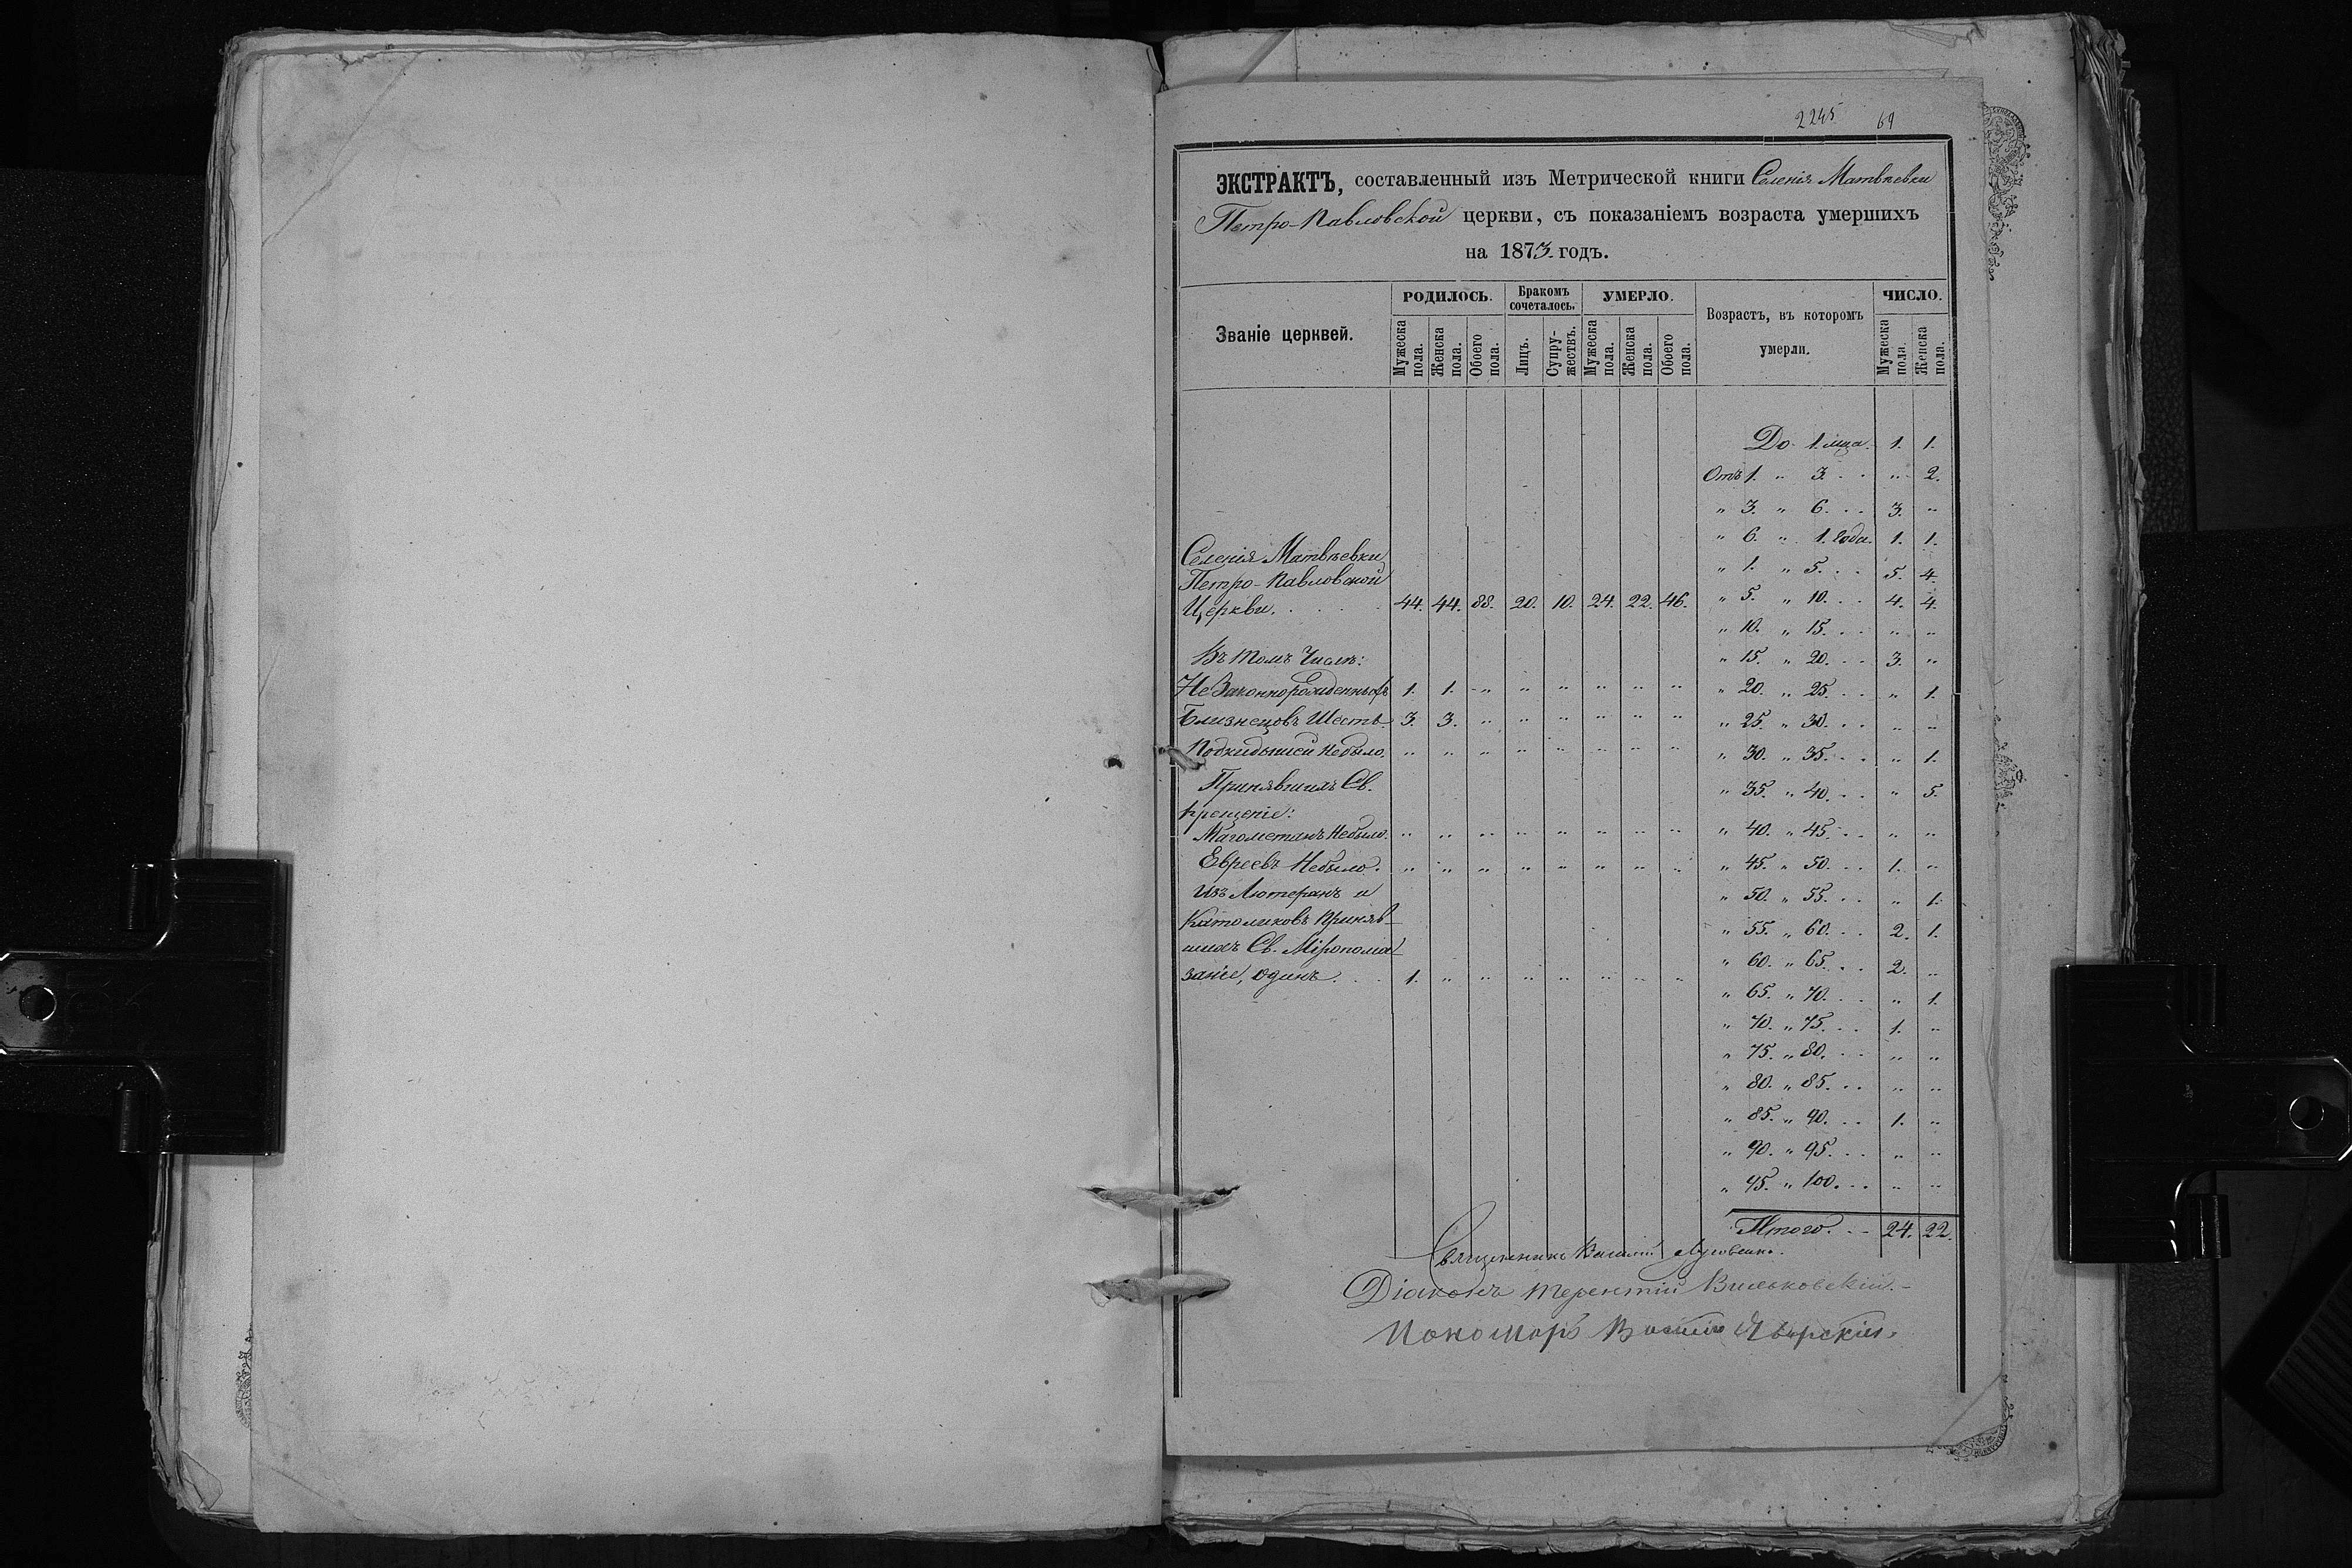 2245 69
ЭКСТРАКТЪ, составленный изъ Метрической книги Селенія Матвѣевки
Петро-Павловской церкви, съ показаніемъ возраста умершихъ
на 1873 годъ.
Званіе церквей. РОДИЛОСЬ. Бракомъ сочеталось. УМЕРЛО. Возрастъ, въ которомъ умерли. ЧИСЛО.
Мужеска пола. Женска пола. Обоего пола. Лицъ. Супружествъ. Мужеска пола. Женска пола. Обоего пола. Мужеска пола. Женска пола.
Селенія Матвѣевки
Петро-Павловской
Церкви. . . . . 44. 44. 88. 20. 10. 24. 22. 46.
Въ томъ числѣ:
Незаконнорожденныхъ 1. 1. " " " " " "
Близнецовъ Шесть 3. 3. " " " " " "
Подкидышей небыло. " " " " " " " "
Принявшихъ Св.
крещеніе:
Магометанъ Небыло. " " " " " " " "
Евреевъ Небыло. " " " " " " " "
Изъ Лютеранъ и
Католиковъ приняв-
шихъ Св. Мѵропома-
заніе, одинъ. . . 1. " " " " " " "
До 1. мца. 1. 1.
Отъ 1. " 3. . . " 2.
" 3. " 6. . . 3. "
" 6. " 1. года. 1. 1.
" 1. " 5. . . 5. 4.
" 5. " 10. . . 4. 4.
" 10. " 15. . . " "
" 15. " 20. . . 3. "
" 20. " 25. . . " 1.
" 25. " 30. . . " "
" 30. " 35. . . " 1.
" 35. " 40. . . " 5.
" 40. " 45. . . " "
" 45. " 50. . . 1. "
" 50. " 55. . . " 1.
" 55. " 60. . . 2. 1.
" 60. " 65. . . 2. "
" 65. " 70. . . " 1.
" 70. " 75. . . 1. "
" 75. " 80. . . " "
" 80. " 85. . . " "
" 85. " 90. . . 1. "
" 90. " 95. . . " "
" 95. " 100. . . " "
Итого. . . 24. 22.
Священникъ Василій
Діаконъ Терентій Вильковскій.
Пономарь Василій Яворскій.